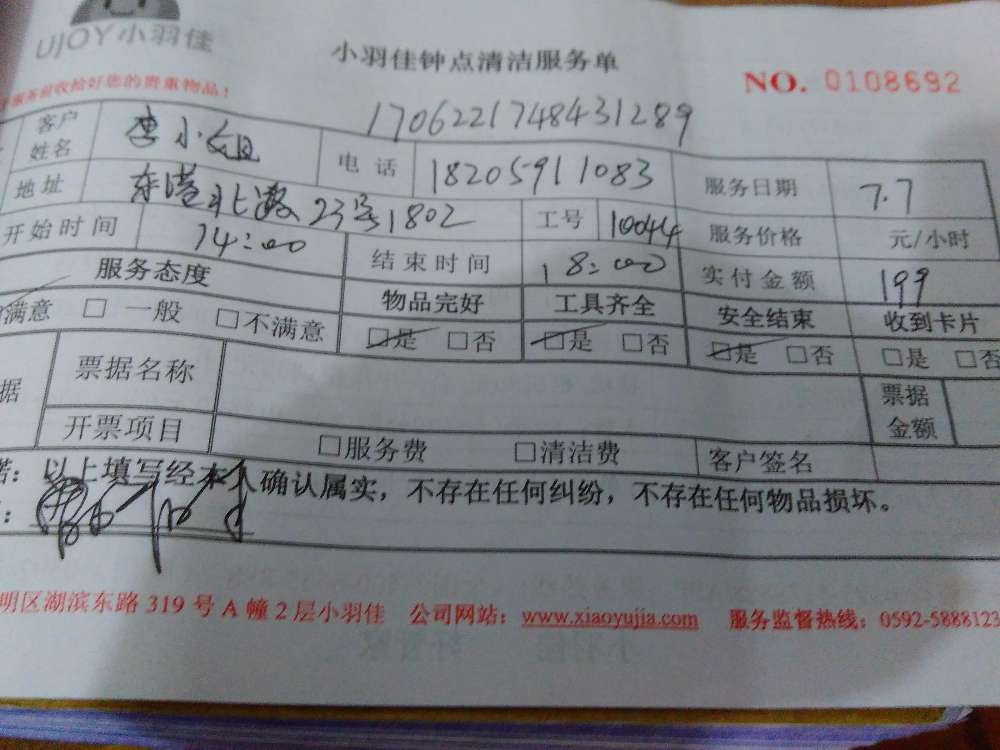 UJOY小羽佳
小羽佳钟点清洁服务单
NO. 0108692
服务前收拾好您的贵重物品！
1706221748431289
客户姓名 李小姐 电话 18205911083 服务日期 7.7
地址 东港北路23号1802 工号 10044 服务价格 元/小时
开始时间 14:00 结束时间 18:00 实付金额 199
服务态度 物品完好 工具齐全 安全结束 收到卡片
满意 □一般 □不满意 □是 □否 □是 □否 □是 □否 □是 □否
据 票据名称 票据金额
开票项目 □服务费 □清洁费 客户签名
诺：以上填写经本人确认属实，不存在任何纠纷，不存在任何物品损坏。
明区湖滨东路319号A幢2层小羽佳 公司网站：www.xiaoyujia.com 服务监督热线：0592-5888123